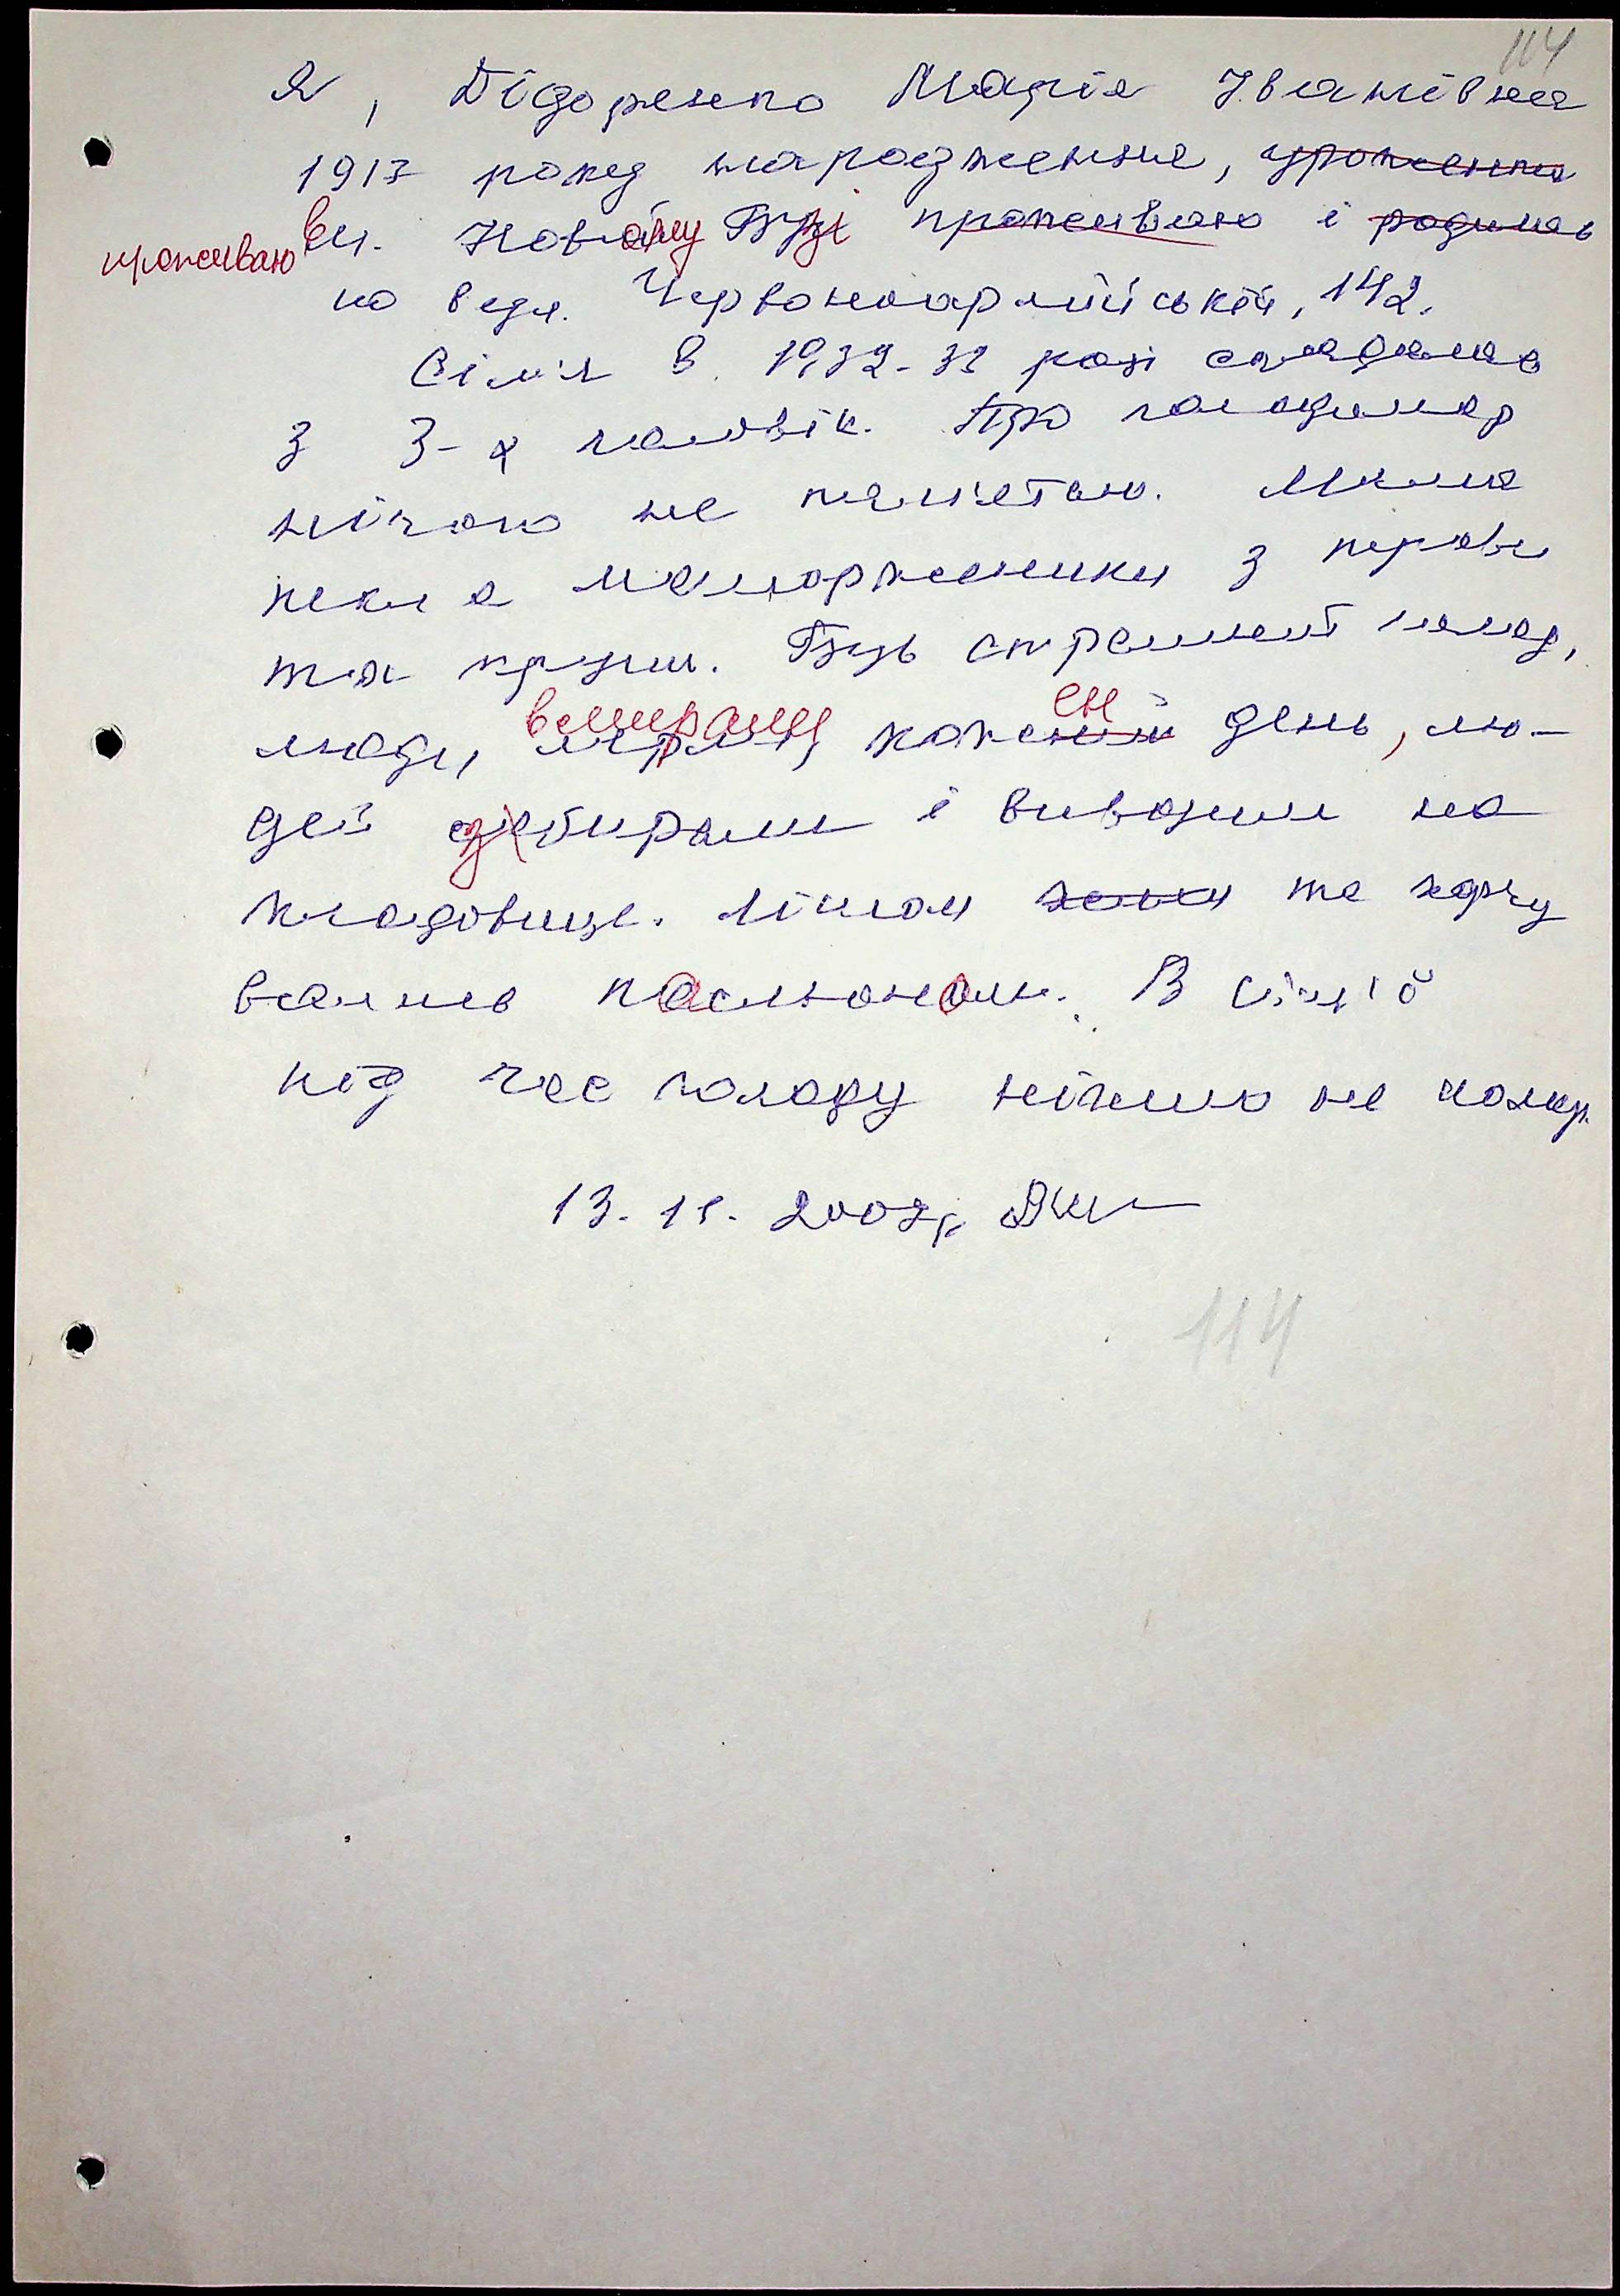 114
Я, Бідоренко Марія Іванівна
1913 року народження, уроженка
проживаю в м. Новому Бузі проживаю і родилась
по вул. Червоноармійській, 142.
Сім'я в 1932-33 році складалась
з 3-х чоловік. Про голодомор
нічого не пам'ятаю. Мама
пекла маторженики з трави
та крупи. Був страшний голод,
люди мерли вмирали кожен день, лю-
дей збирали і вивозили на
кладовище. Літом та харчу
вались пасльоном. В сім'ї
під час голоду нічого не помер.
13.11.2007р.
114